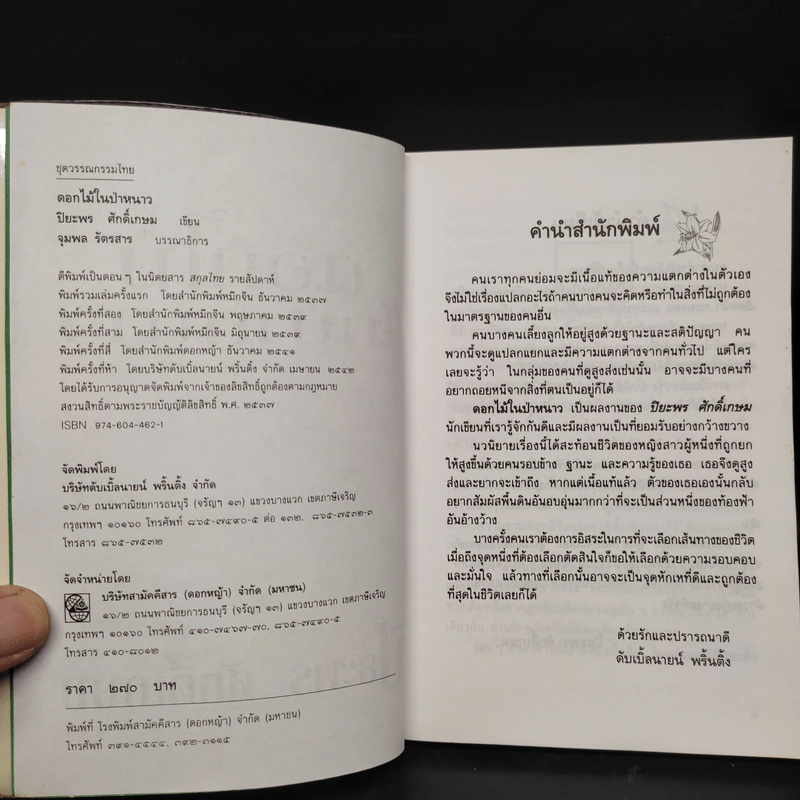 ชุดวรรณกรรมไทย
ดอกไม้ในป่าหนาว
ปิยะพร ศักดิ์เกษม เขียน
จุมพล รัตรสาร บรรณาธิการ
ตีพิมพ์เป็นตอนๆ ในนิตยสาร สกุลไทย รายสัปดาห์
พิมพ์รวมเล่มครั้งแรก โดยสำนักพิมพ์หมึกจีน ธันวาคม ๒๕๓๗
พิมพ์ครั้งที่สอง โดยสำนักพิมพ์หมึกจีน พฤษภาคม ๒๕๓๙
พิมพ์ครั้งที่สาม โดยสำนักพิมพ์หมึกจีน มิถุนายน ๒๕๓๙
พิมพ์ครั้งที่สี่ โดยสำนักพิมพ์ดอกหญ้า ธันวาคม ๒๕๔๑
พิมพ์ครั้งที่ห้า โดยบริษัทดับเบิ้ลนายน์ พริ้นติ้ง จำกัด เมษายน ๒๕๔๒
โดยได้รับการอนุญาตจัดพิมพ์จากเจ้าของลิขสิทธิ์ถูกต้องตามกฎหมาย
สงวนสิทธิ์ตามพระราชบัญญัติลิขสิทธิ์ พ.ศ. ๒๕๓๗
ISBN 974-604-462-1
จัดพิมพ์โดย
บริษัทดับเบิ้ลนายน์ พริ้นติ้ง จำกัด
๑๖/๒ ถนนพาณิชยการธนบุรี (จรัญฯ ๑๓) แขวงบางแวก เขตภาษีเจริญ
กรุงเทพฯ ๑๐๑๖๐ โทรศัพท์ ๘๖๕-๗๔๙๐-๕ ต่อ ๑๓๒, ๘๖๕-๗๕๓๒-๓
โทรสาร ๘๖๕-๗๕๓๒
จัดจำหน่ายโดย
บริษัทสามัคคีสาร (ดอกหญ้า) จำกัด (มหาชน)
๑๖/๒ ถนนพาณิชยการธนบุรี (จรัญฯ ๑๓) แขวงบางแวก เขตภาษีเจริญ
กรุงเทพฯ ๑๐๑๖๐ โทรศัพท์ ๔๑๐-๗๔๖๗-๗๐, ๘๖๕-๗๔๙๐-๕
โทรสาร ๔๑๐-๘๐๑๒
ราคา ๒๗๐ บาท
พิมพ์ที่ โรงพิมพ์สามัคคีสาร (ดอกหญ้า) จำกัด (มหาชน)
โทรศัพท์ ๓๙๑-๔๕๔๔, ๓๙๒-๓๑๑๕
คำนำสำนักพิมพ์
คนเราทุกคนย่อมจะมีเนื้อแท้ของความแตกต่างในตัวเอง
จึงไม่ใช่เรื่องแปลกอะไรถ้าคนบางคนจะคิดหรือทำในสิ่งที่ไม่ถูกต้อง
ในมาตรฐานของคนอื่น
คนบางคนเลี้ยงลูกให้อยู่สูงด้วยฐานะและสติปัญญา คน
พวกนี้จะดูแปลกแยกและมีความแตกต่างจากคนทั่วไป แต่ใคร
เลยจะรู้ว่า ในกลุ่มของคนที่ดูสูงส่งเช่นนั้น อาจจะมีบางคนที่
อยากถอยหนีจากสิ่งที่ตนเป็นอยู่ก็ได้
ดอกไม้ในป่าหนาว เป็นผลงานของ ปิยะพร ศักดิ์เกษม
นักเขียนที่เรารู้จักกันดีและมีผลงานเป็นที่ยอมรับอย่างกว้างขวาง
นวนิยายเรื่องนี้ได้สะท้อนชีวิตของหญิงสาวผู้หนึ่งที่ถูกยก
ให้สูงขึ้นด้วยคนรอบข้าง ฐานะ และความรู้ของเธอ เธอจึงดูสูง
ส่งและยากจะเข้าถึง หากแต่เนื้อแท้แล้ว ตัวของเธอเองนั้นกลับ
อยากสัมผัสพื้นดินอันอบอุ่นมากกว่าที่จะเป็นส่วนหนึ่งของท้องฟ้า
อันอ้างว้าง
บางครั้งคนเราต้องการอิสระในการที่จะเลือกเส้นทางของชีวิต
เมื่อถึงจุดหนึ่งที่ต้องเลือกตัดสินใจก็ขอให้เลือกด้วยความรอบคอบ
และมั่นใจ แล้วทางที่เลือกนั้นอาจจะเป็นจุดหักเหที่ดีและถูกต้อง
ที่สุดในชีวิตเลยก็ได้
ด้วยรักและปรารถนาดี
ดับเบิ้ลนายน์ พริ้นติ้ง